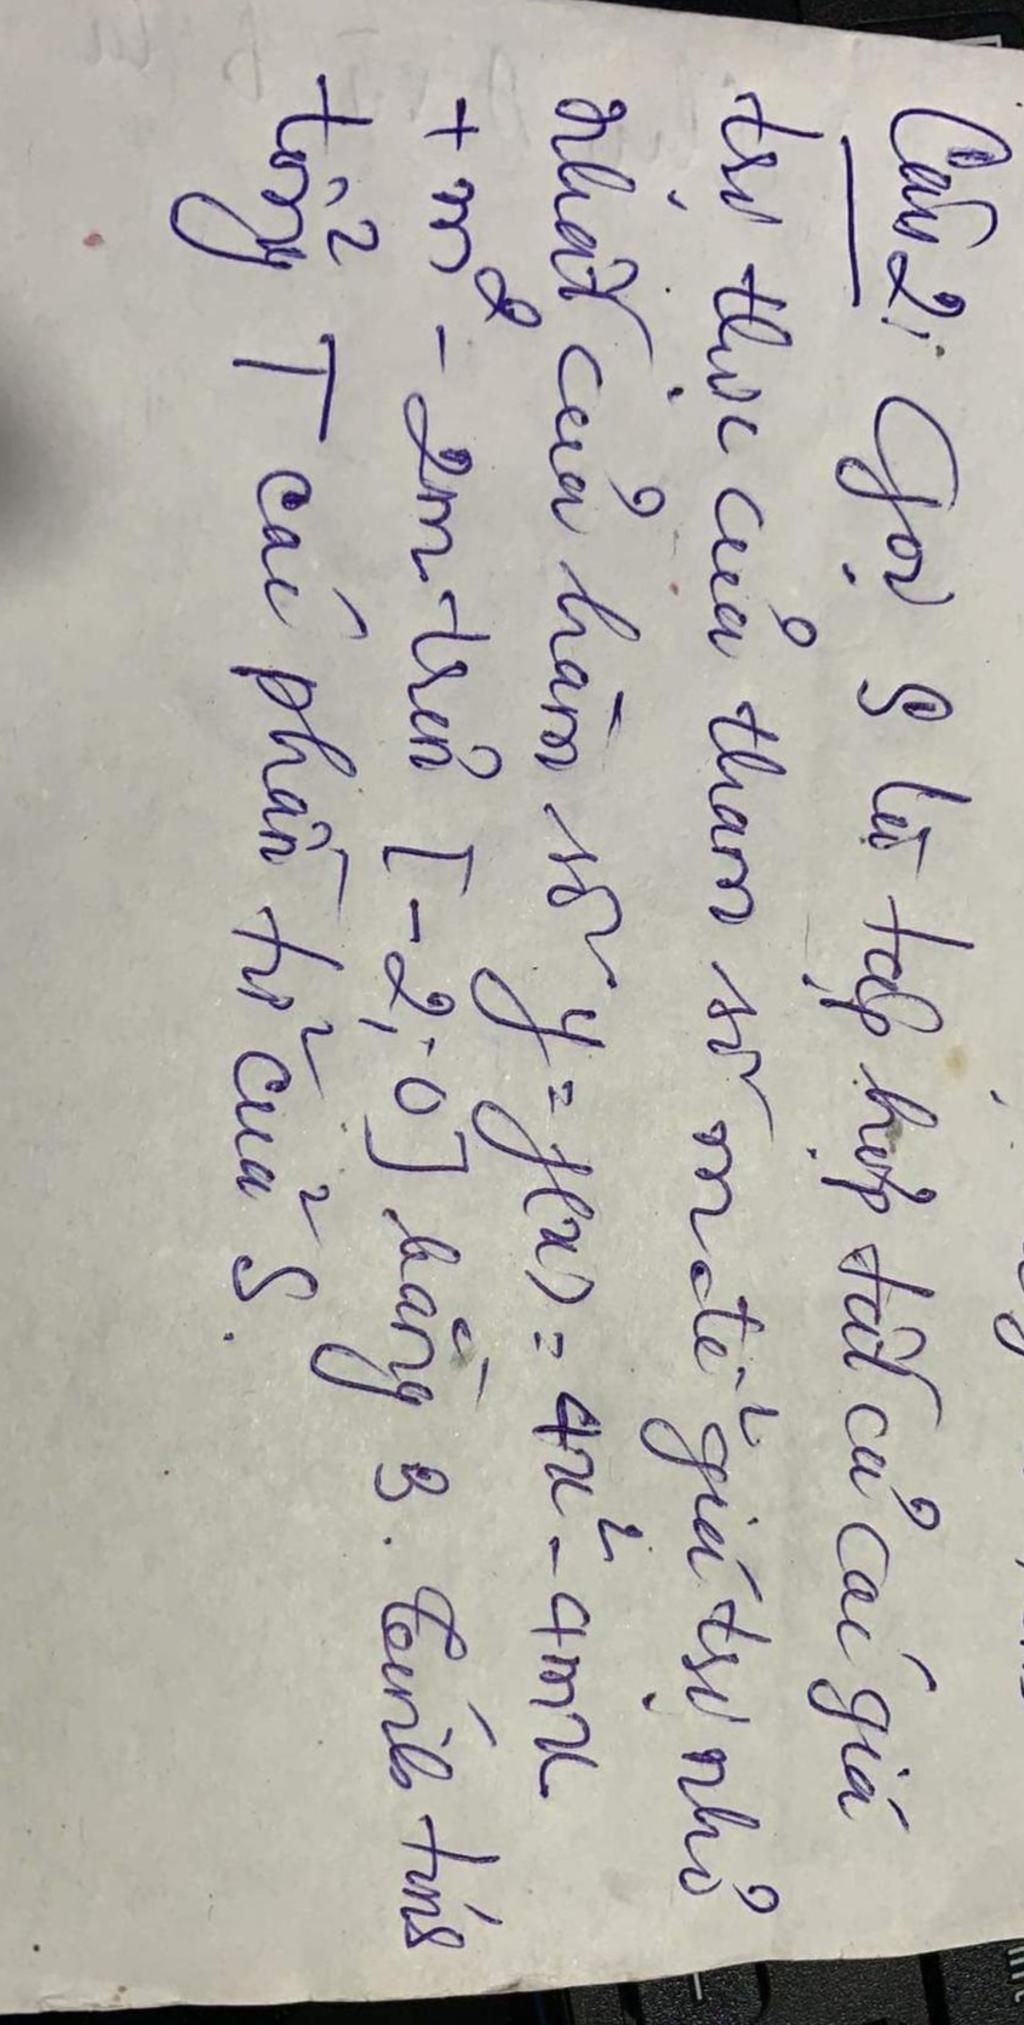 Câu 2: Gọi S là tập hợp tất cả các giá
trị thực của tham số m để giá trị nhỏ
nhất của hàm số y = f(x) = 4x² - 4mx
+ m² - 2m trên [-2; 0] bằng 3. Tính
tổng T các phần tử của S.